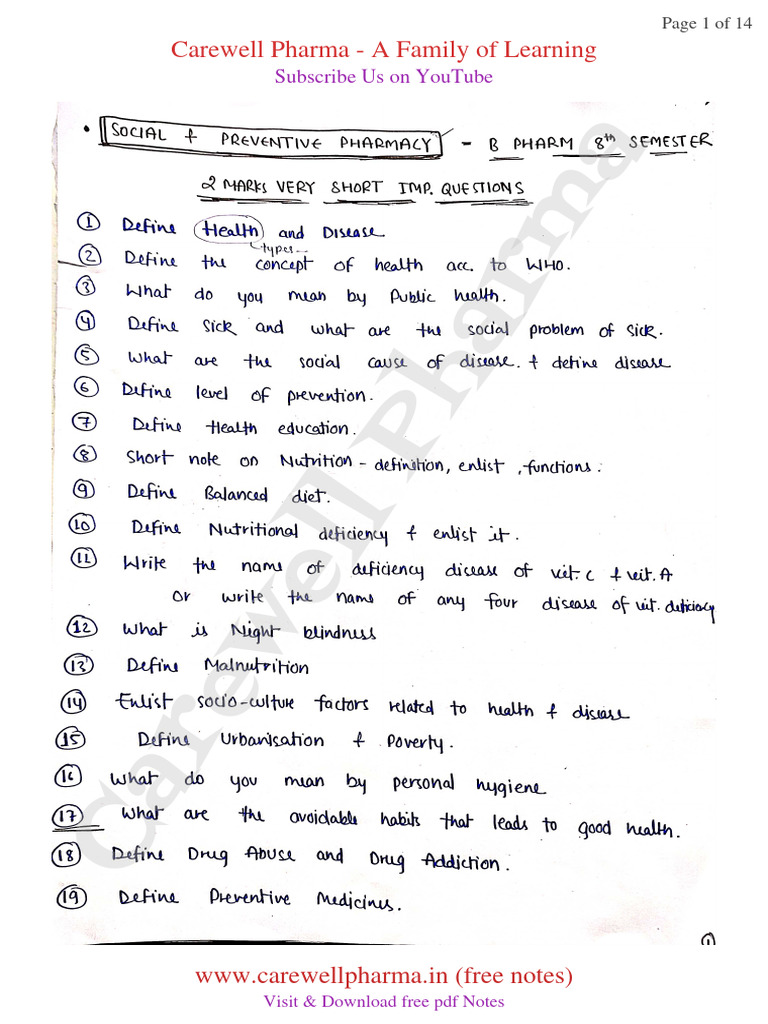 Page 1 of 14
Carewell Pharma - A Family of Learning
Subscribe Us on YouTube
• SOCIAL & PREVENTIVE PHARMACY - B PHARM 8th SEMESTER
2 MARKS VERY SHORT IMP. QUESTIONS
① Define Health and Disease
types
② Define the concept of health acc. to WHO.
③ What do you mean by Public health.
④ Define Sick and what are the social problem of sick.
⑤ What are the social cause of disease. & define disease
⑥ Define level of prevention.
⑦ Define Health education.
⑧ Short note on Nutrition - definition, enlist, functions.
⑨ Define Balanced diet.
⑩ Define Nutritional deficiency & enlist it.
⑪ Write the name of deficiency disease of vit. C & vit. A
or write the name of any four disease of vit. deficiacy
⑫ What is Night blindness
⑬ Define Malnutrition
⑭ Enlist socio-culture factors related to health & disease
⑮ Define Urbanisation & Poverty.
⑯ What do you mean by personal hygiene
⑰ What are the avoidable habits that leads to good health.
⑱ Define Drug Abuse and Drug Addiction.
⑲ Define Preventive Medicines.
1
Carewell Pharma
www.carewellpharma.in (free notes)
Visit & Download free pdf Notes